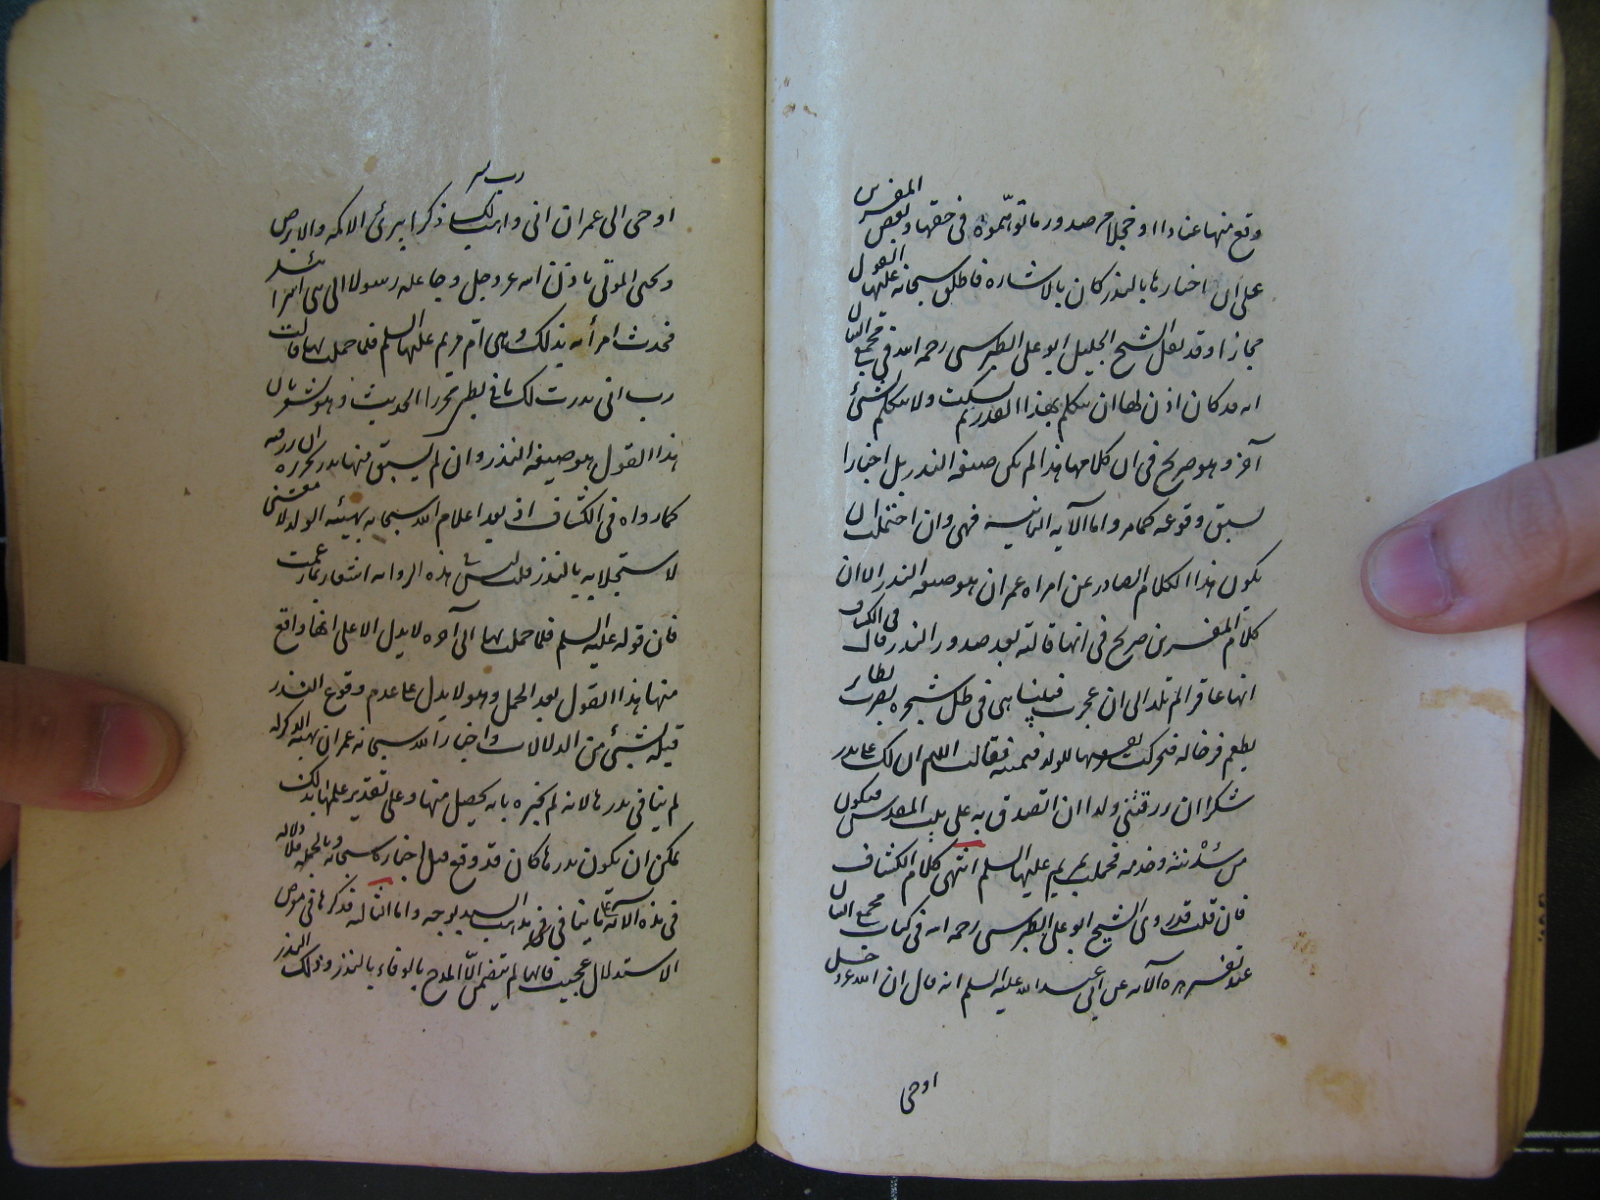 وقع منها عنادا او خجلا من صدور ما توهموه فى حقها وبعض المفسرين
على ان اخبارها بالنذر كان بالاشاره فاطلق سبحانه عليها القول
مجازا وقد نقل الشيخ الجليل ابو على الطبرسى رحمه الله فى مجمع البيان
انه قد كان اذن لها ان تتكلم بهذا القدر ثم تسكت ولا تتكلم بشئ
آخر وهو صريح فى ان كلامها هذا لم يكن صيغة النذر بل اخبارا
بسبق وقوعه كما مر واما الآية الثانيه فهى وان احتملت ان
يكون هذا الكلام الصادر عن امراه عمران هو صيغه النذر الا ان
كلام المفسرين صريح فى انها قالته بعد صدور النذر قال فى الكشاف
انها عاقر الم تلد الى ان عجزت فبينا هى فى ظل شجره بصرت بطاير
يطعم فرخا له فتحركت نفسها للولد فتمنته فقالت اللهم ان لك على نذر
شكرا ان رزقتنى ولدا ان اتصدق به على بيت المقدس فيكون
من سدنته وخدمه فحملت بمريم عليها السلم انتهى كلام الكشاف
فان قلت قد روى الشيخ ابو على الطبرسى رحمه الله فى كتاب مجمع البيان
عند تفسير هذه الآيه عن ابى عبد الله عليه السلم انه قال ان الله عز وجل
اوحى
اوحى الى عمران انى واهب لك ذكرا يبرئ الاكمه والابرص
ويحيى الموتى باذن الله عز وجل وجاعله رسولا الى بنى اسرائيل
فحدث امرأته بذلك وهى ام مريم عليها السلم فلما حملت بها قالت
رب انى نذرت لك ما فى بطنى محررا الحديث وهو مشعر بان
هذا القول هو صيغه النذر وان لم يسبق منها نذر تحريره ان رزقته
كما رواه فى الكشاف اذ بعد اعلام الله سبحانه بهيئه الولد لا مقتضى
لاستجلابه بالنذر قلت ليس فى هذه الروايه اشعار بما زعمت
فان قوله عليه السلم فلما حملت بها الى آخره لا يدل الا على انها واقع
منها هذا القول بعد الحمل وهو لا يدل على عدم وقوع النذر
قبله بشئ من الدلالات واخبار الله سبحانه عمران بهبته الولد له
لم ينافى نذرها لانه لم يخبره بانه يحصل منها وعلى تقدير علمها بذلك
يمكن ان يكون نذرها كان قد وقع قبل اخباره سبحانه وبالجمله فلا دلاله
فى هذه الآيه على ما ينافى مذهب السيد بوجه واما الثالثه فذكرها فى معرض
الاستدلال عجيب فانها لم تتضمن الا المدح بالوفاء بالنذر وذلك النذر